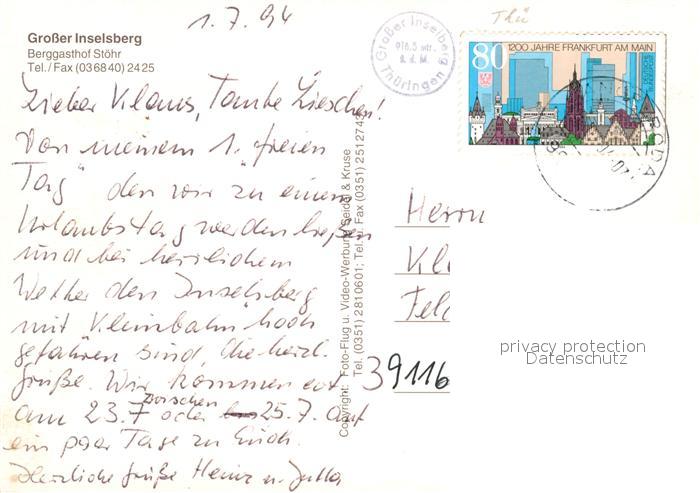 1.7.94
Großer Inselsberg
Berggasthof Stöhr
Tel./Fax (03 68 40) 24 25
Lieber Klaus, Tante Lieschen!
Von meinem "1. freien
Tag" den wir zu einem
Urlaubstag werden ließen
und bei herrlichem
Wetter den Inselsberg
mit Kleinbahn hoch
gefahren sind, die herzl.
Grüße. Wir kommen evt.
am 23.7 oder zwischen 25.7. auf
ein paar Tage zu Euch.
Herzliche Grüße Heinz u. Jutta
Copyright: Foto-Flug u. Video-Werbung Seidel & Kruse
Tel. (0351) 2810601; Tel. u. Fax (0351) 2512743
Großer Inselberg
916,5 mtr.
ü. d. M.
Thüringen
Thü
80
1200 JAHRE FRANKFURT AM MAIN
Herrn
Kl
Fel
39116
privacy protection
Datenschutz